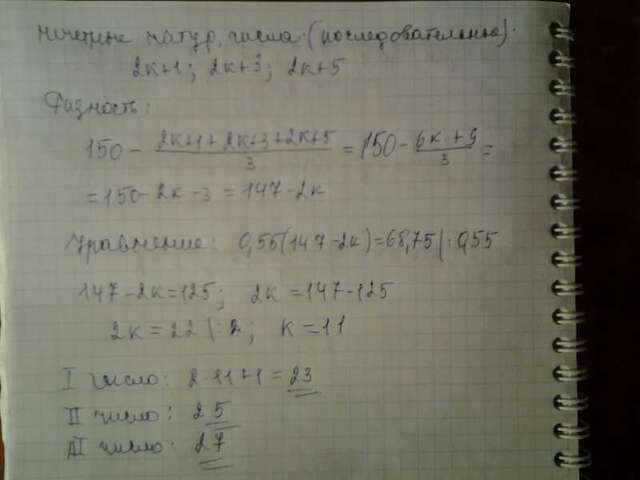 нечетные натур. числа: (последовательные).
2k+1; 2k+3; 2k+5
Разность:
150 - (2k+1+2k+3+2k+5)/3 = 150 - (6k+9)/3 =
= 150 - 2k - 3 = 147 - 2k
Уравнение: 0,55(147-2k)=68,75|:0,55
147-2k=125; 2k=147-125
2k=22|:2; k=11
I число: 2·11+1=23
II число: 25
III число: 27